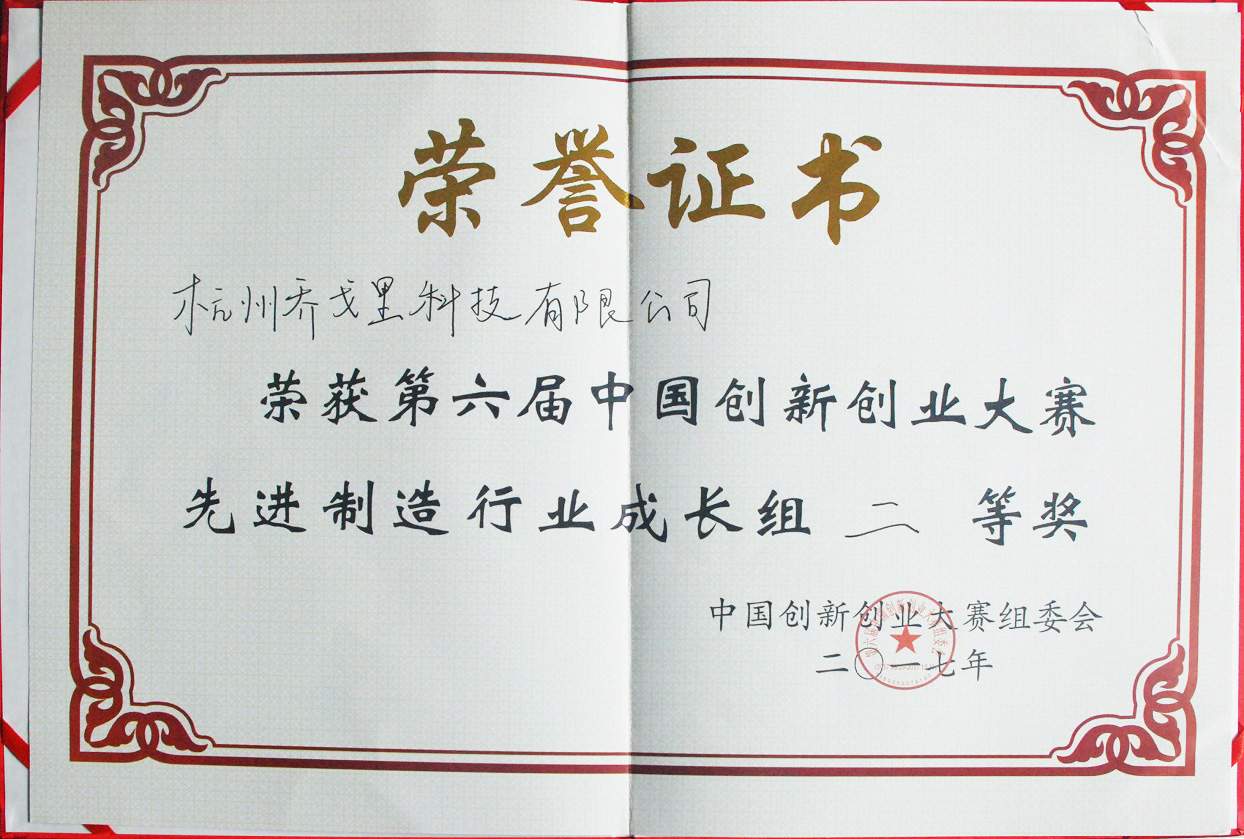 荣誉证书
杭州乔戈里科技有限公司
荣获第六届中国创新创业大赛
先进制造行业成长组 二 等奖
中国创新创业大赛组委会
二〇一七年